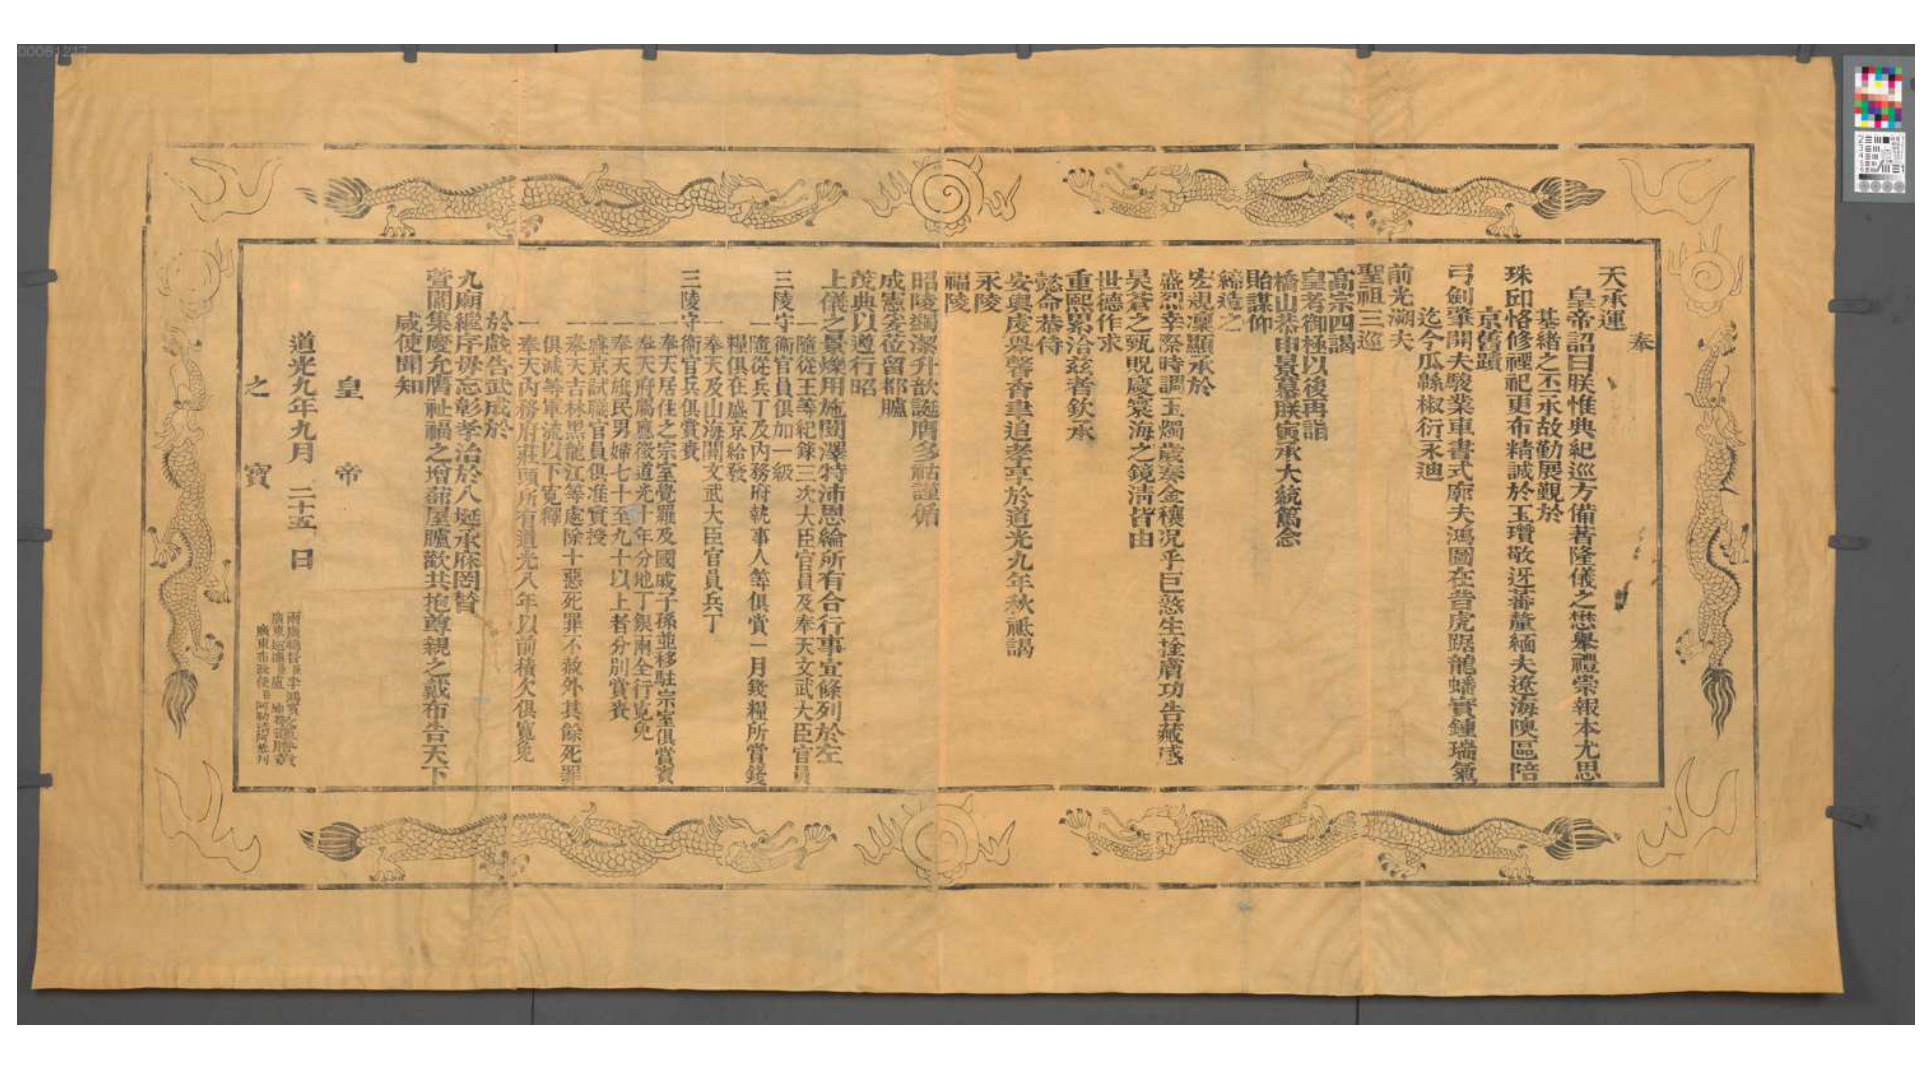 奉
天承運
皇帝詔曰朕惟典紀巡方備著隆儀之懋舉禮崇報本尤思
基緒之丕承故勤展觀於
珠邱恪修禋祀更布精誠於玉瓚敬迓蕃釐緬夫遼海隩區陪
京舊蹟
弓劍肇開夫駿業車書式廓夫鴻圖在昔虎踞龍蟠實鍾瑞氣
迄今瓜緜椒衍永迪
前光溯夫
聖祖三巡
高宗四謁
皇考御極以後再詣
橋山恭申景慕朕寅承大統篤念
貽謀仰
締造之
宏規凜顯承於
盛烈幸際時調玉燭歲奏金穰況乎巨憝生擒膚功告蕆感
昊蒼之甄貺慶寰海之鏡清皆由
世德作求
重熙累洽茲者欽承
懿命恭侍
安輿慶舉馨香聿追孝享於道光九年秋祗謁
永陵
福陵
昭陵蠲潔升歆誕膺多祜謹循
成憲爰莅留都臚
茂典以遵行昭
上儀之景爍用施闓澤特沛恩綸所有合行事宜條列於左
一隨從王等紀錄三次大臣官員及奉天文武大臣官員
三陵守衞官員俱加一級
一隨從兵丁及內務府執事人等俱賞一月錢糧所賞錢
糧俱在盛京給發
一奉天及山海關文武大臣官員兵丁
三陵守衞官兵俱賞賚
一奉天居住之宗室覺羅及國戚子孫並移駐宗室俱賞賚
一奉天府屬應徵道光十年分地丁銀兩全行寬免
一奉天旗民男婦七十至九十以上者分別賞賚
一盛京試職官員俱准實授
一奉天吉林黑龍江等處除十惡死罪不赦外其餘死罪
俱減等軍流以下寬釋
一奉天內務府莊頭所有道光八年以前積欠俱寬免
於戲告武成於
九廟繼序毋忘彰孝治於八埏承庥罔替
萱闈集慶允膺祉福之增蔀屋臚歡共抱尊親之戴布告天下
咸使聞知
皇帝
道光九年九月二十五日
之寶
兩廣總督臣李鴻賓
廣東巡撫臣盧坤
廣東布政使臣阿勒清阿